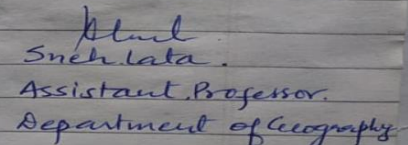 Sneh Lata.
Assistant Professor.
Department of Geography